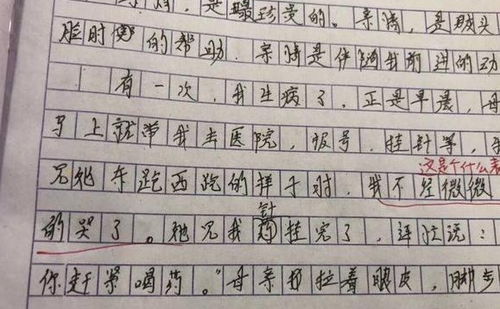 是最珍贵的。亲情，是
脸时的帮助。亲情是伴随我前进的动
有一次，我生病了，正是早晨，母
马上就带我去医院，报号，挂针等，
见她东跑西跑的样子时，我不经微微
这是个什么表
的哭了。她见我针挂完了，连忙说：
你赶紧喝药。"母亲打拉着眼皮，脚步